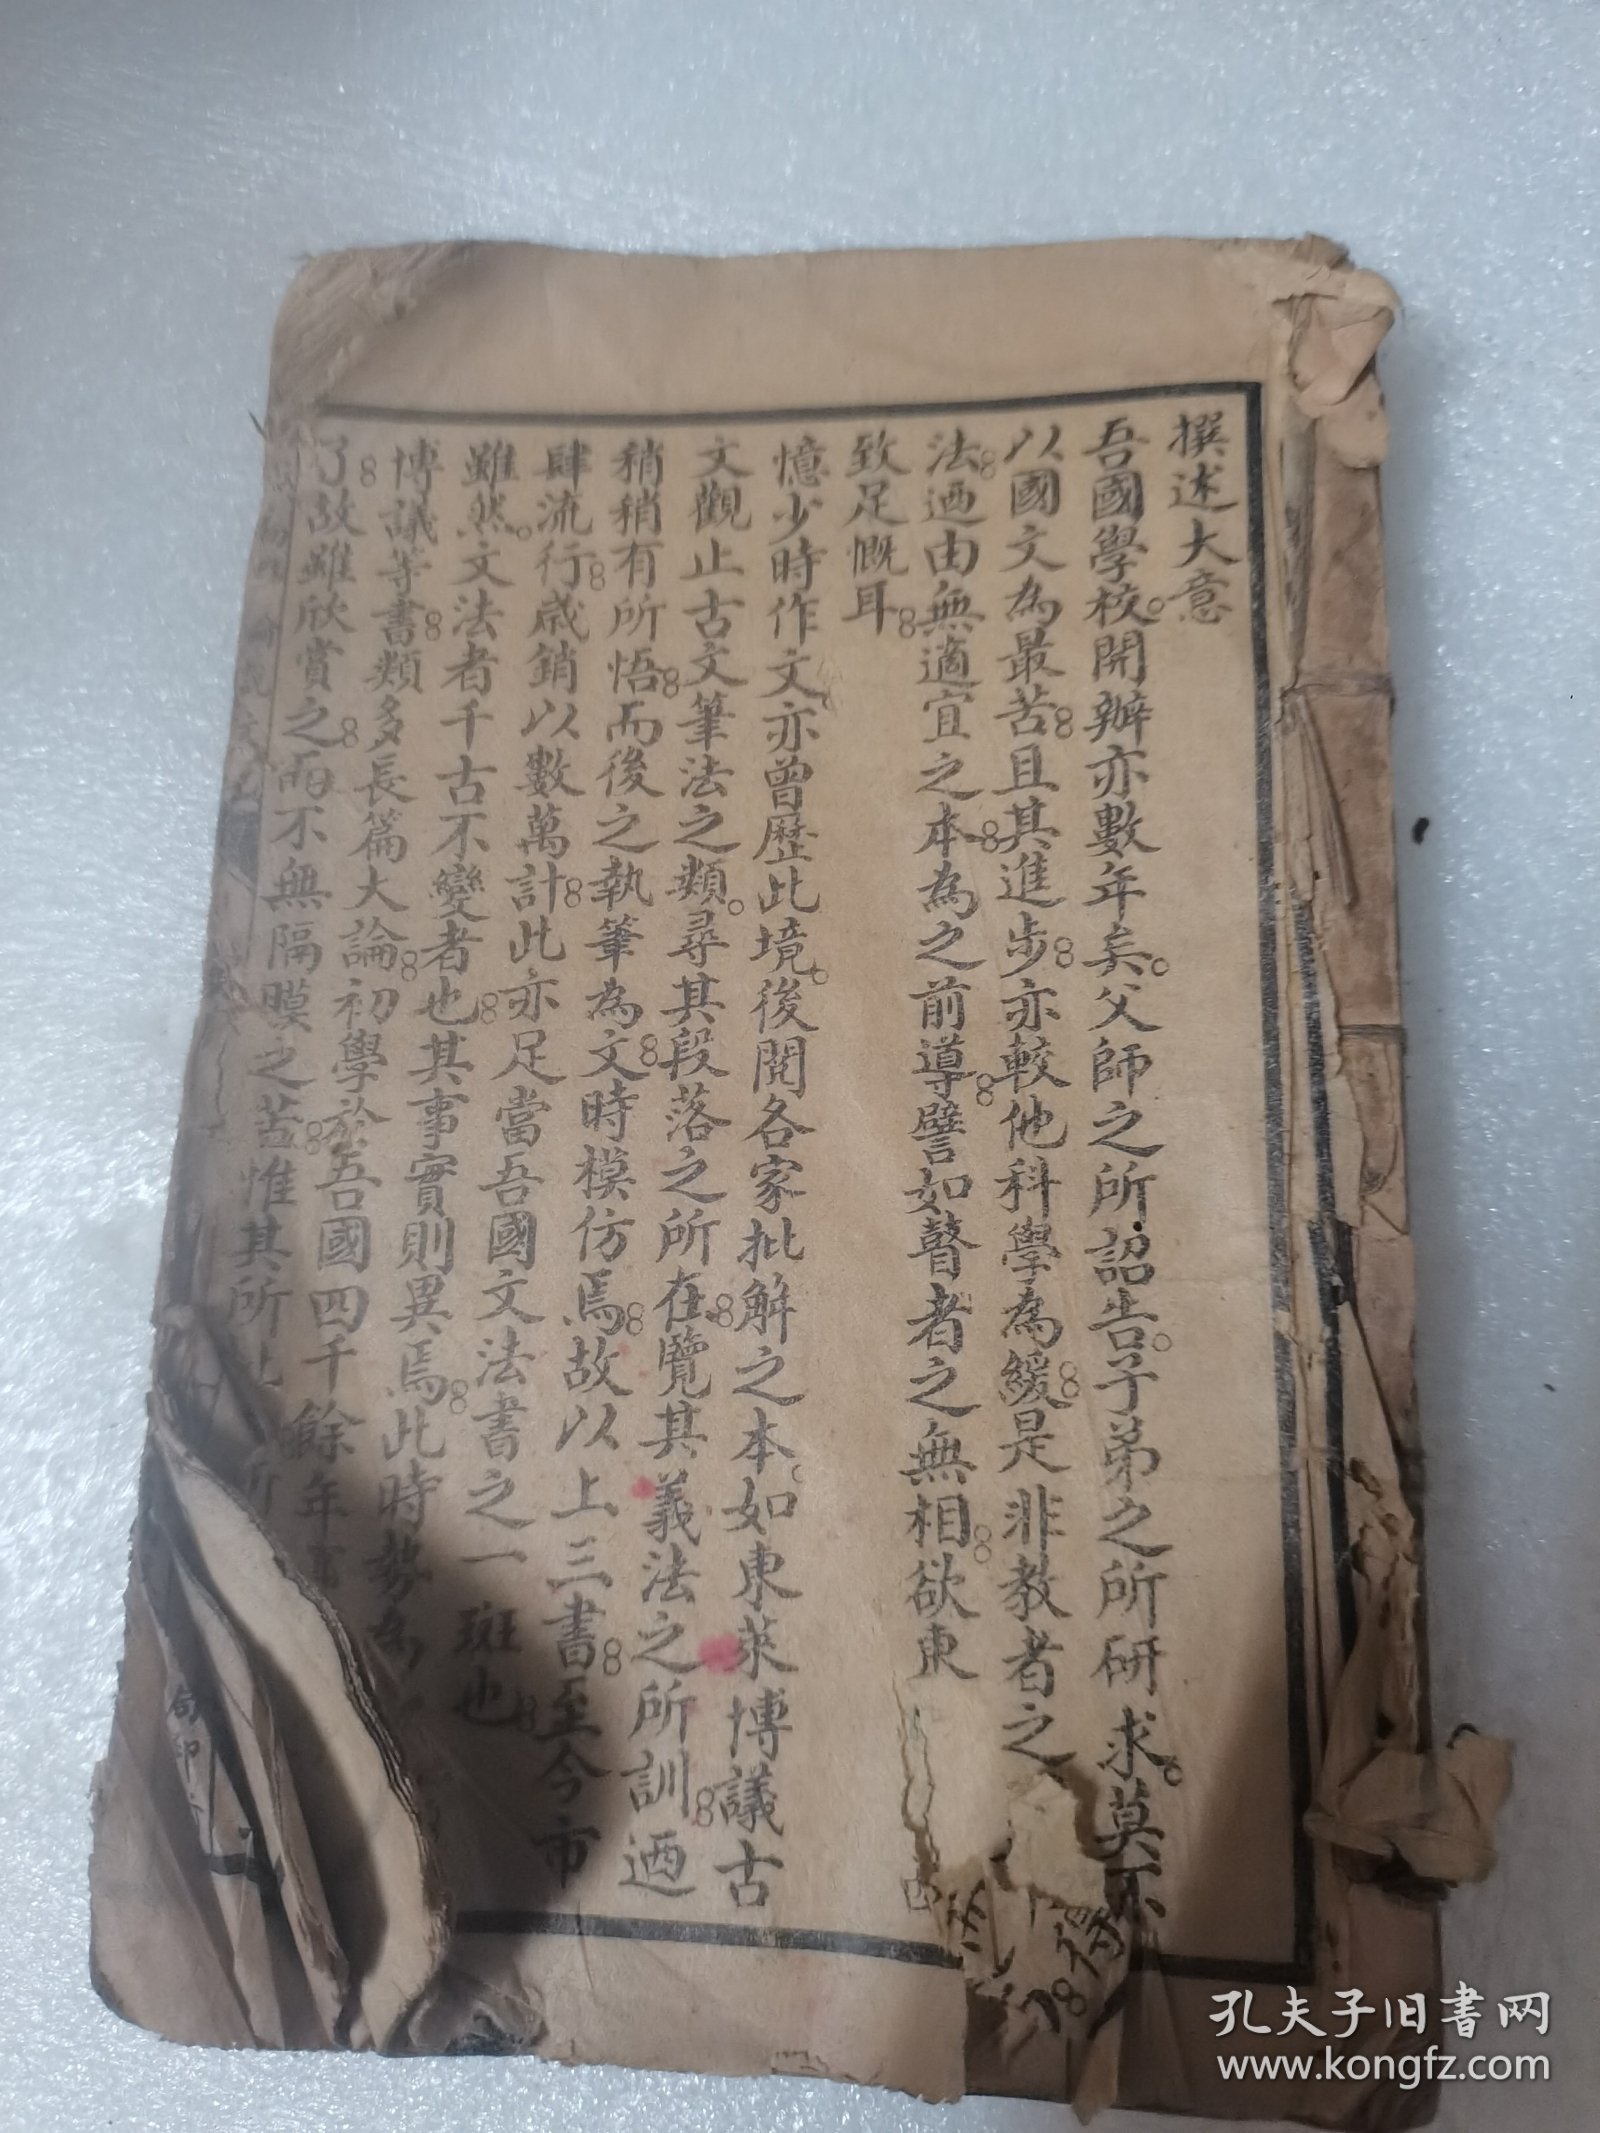 撰述大意
吾國學校開辦亦數年矣父師之所詔告子弟之所研求莫不
以國文為最苦且其進步亦較他科學為緩是非教者之
法迺由無適宜之本為之前導譬如瞽者之無相欲東
致足慨耳
憶少時作文亦曾歷此境後閱各家批解之本如東萊博議古
文觀止古文筆法之類尋其段落之所在覽其義法之所訓迺
稍稍有所悟而後之執筆為文時模仿焉故以上三書至今市
肆流行歲銷以數萬計此亦足當吾國文法書之一斑也
雖然文法者千古不變者也其事實則異焉此時勢為
博議等書類多長篇大論初學於吾國四千餘年
了故雖欣賞之而不無隔膜之苦惟其所
孔夫子旧书网
www.kongfz.com